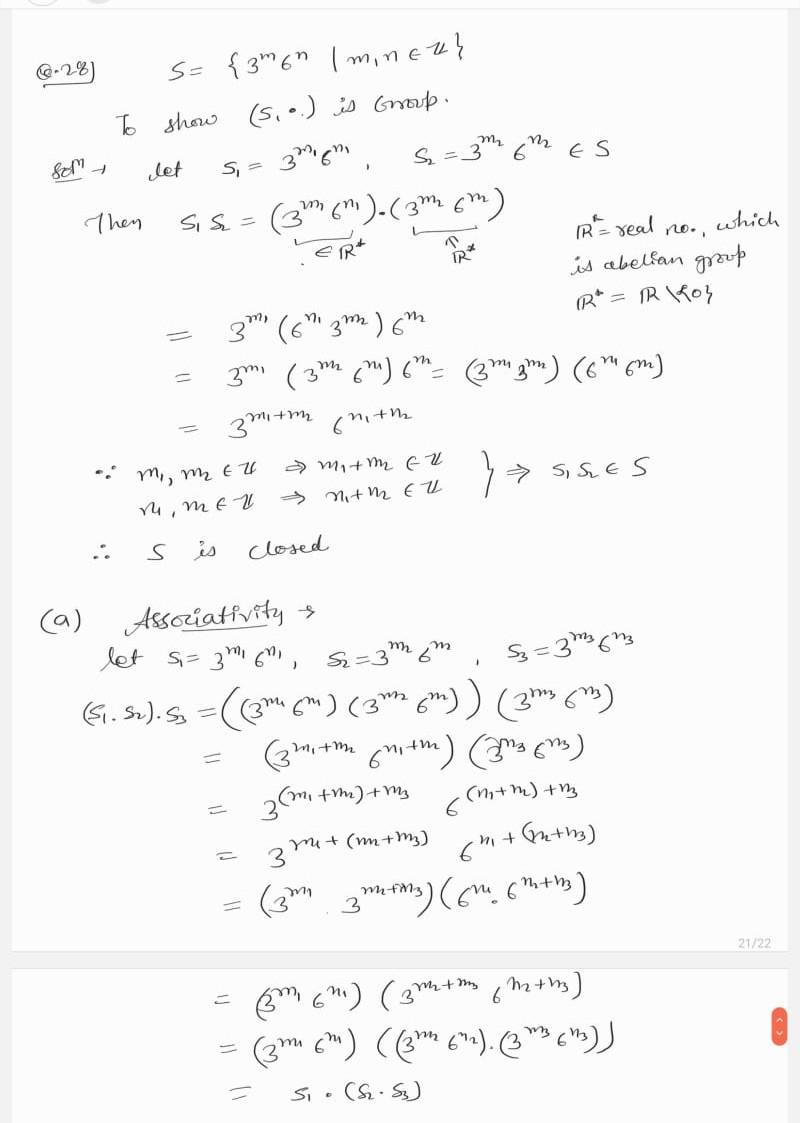 Q.28) S = {3^m 6^n | m, n ∈ Z}
To show (S, ·) is Group.
Solⁿ → let S₁ = 3^m₁ 6^n₁, S₂ = 3^m₂ 6^n₂ ∈ S
Then S₁ S₂ = (3^m₁ 6^n₁)·(3^m₂ 6^n₂)
∈ R* ∈ R*
R* = real no., which
is abelian group
R* = R \ {0}
= 3^m₁ (6^n₁ 3^m₂) 6^n₂
= 3^m₁ (3^m₂ 6^n₁) 6^n₂ = (3^m₁ 3^m₂) (6^n₁ 6^n₂)
= 3^m₁+m₂ 6^n₁+n₂
∵ m₁, m₂ ∈ Z ⇒ m₁+m₂ ∈ Z
n₁, n₂ ∈ Z ⇒ n₁+n₂ ∈ Z } ⇒ S₁ S₂ ∈ S
∴ S is closed
(a) Associativity →
let S₁ = 3^m₁ 6^n₁, S₂ = 3^m₂ 6^n₂, S₃ = 3^m₃ 6^n₃
(S₁ · S₂) · S₃ = ((3^m₁ 6^n₁) (3^m₂ 6^n₂)) (3^m₃ 6^n₃)
= (3^m₁+m₂ 6^n₁+n₂) (3^m₃ 6^n₃)
= 3^(m₁+m₂)+m₃ 6^(n₁+n₂)+n₃
= 3^m₁+(m₂+m₃) 6^n₁+(n₂+n₃)
= (3^m₁ · 3^m₂+m₃) (6^n₁ · 6^n₂+n₃)
21/22
= (3^m₁ 6^n₁) (3^m₂+m₃ 6^n₂+n₃)
= (3^m₁ 6^n₁) ((3^m₂ 6^n₂)·(3^m₃ 6^n₃))
= S₁ · (S₂ · S₃)